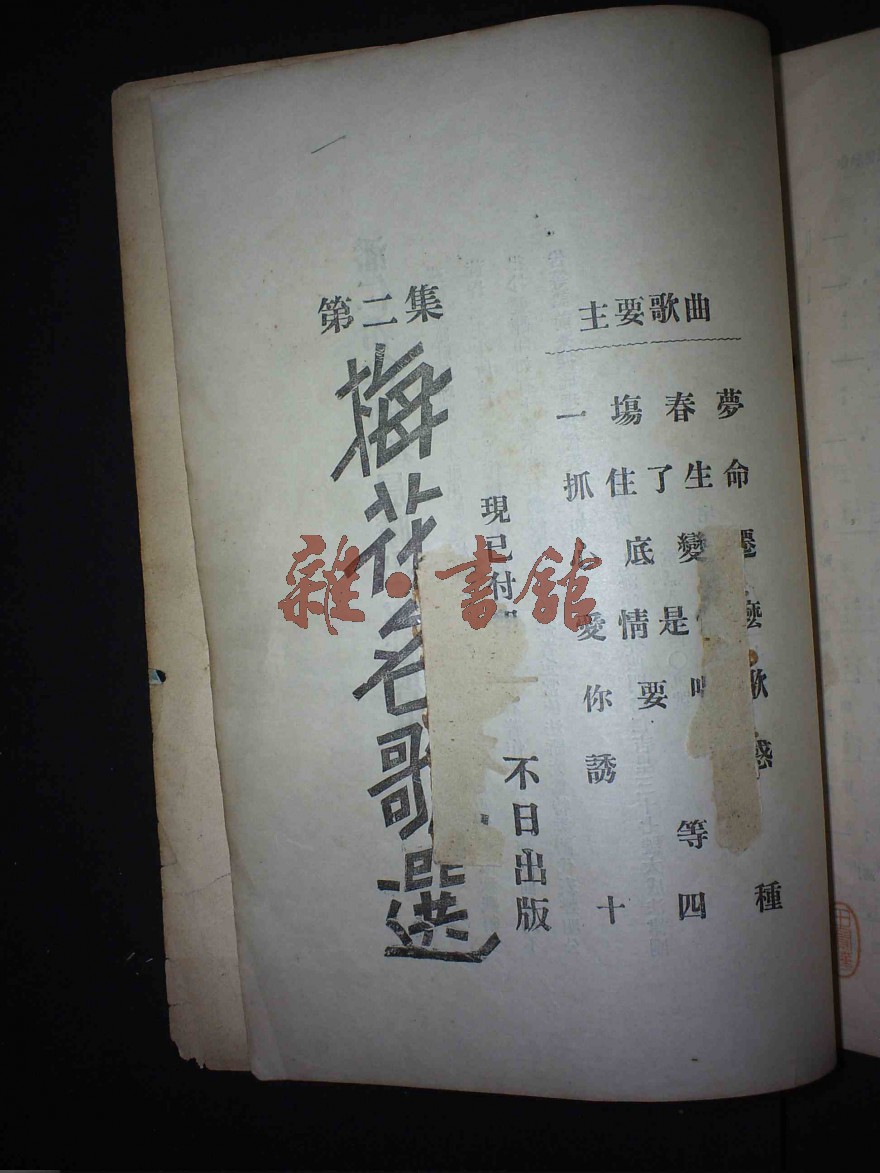 第二集
梅花名歌選
現已付
不日出版
主要歌曲
一塲春夢
抓住了生命
底變遷
愛情是麼
你要歌
誘惑
等
十四種
雜·書館